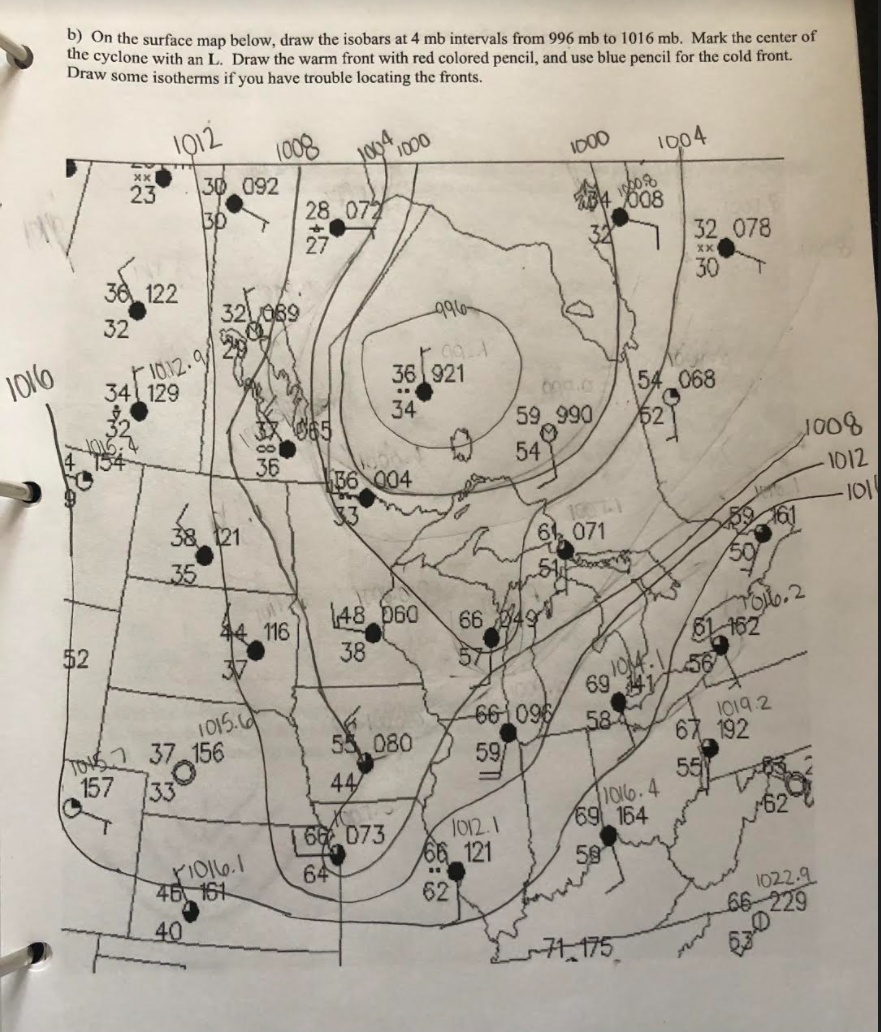 b) On the surface map below, draw the isobars at 4 mb intervals from 996 mb to 1016 mb. Mark the center of
the cyclone with an L. Draw the warm front with red colored pencil, and use blue pencil for the cold front.
Draw some isotherms if you have trouble locating the fronts.
1012 1008 1004 1000 1000 1004
xx
23
30 092
30
28 072
27
1000.8
34 008
32
32 078
xx
30
36 122
32
32 089
29
996
1012.9
34 129
32
36 921
34
54 068
52
1016
37 065
∞
36
59 990
54
1008
1012
101
4 154
9
36 004
33
59 161
50
38 121
35
61 071
51
1016.2
61 162
56
44 116
37
48 060
38
66 049
57
52
1014.1
69 141
58
1015.6
37 156
33
66 096
59
1019.2
67 192
55
1015.7
157
55 080
44
63 2
62
1016.4
69 164
59
66 073
64
1012.1
66 121
62
1016.1
46 161
40
1022.9
66 229
63
71 175